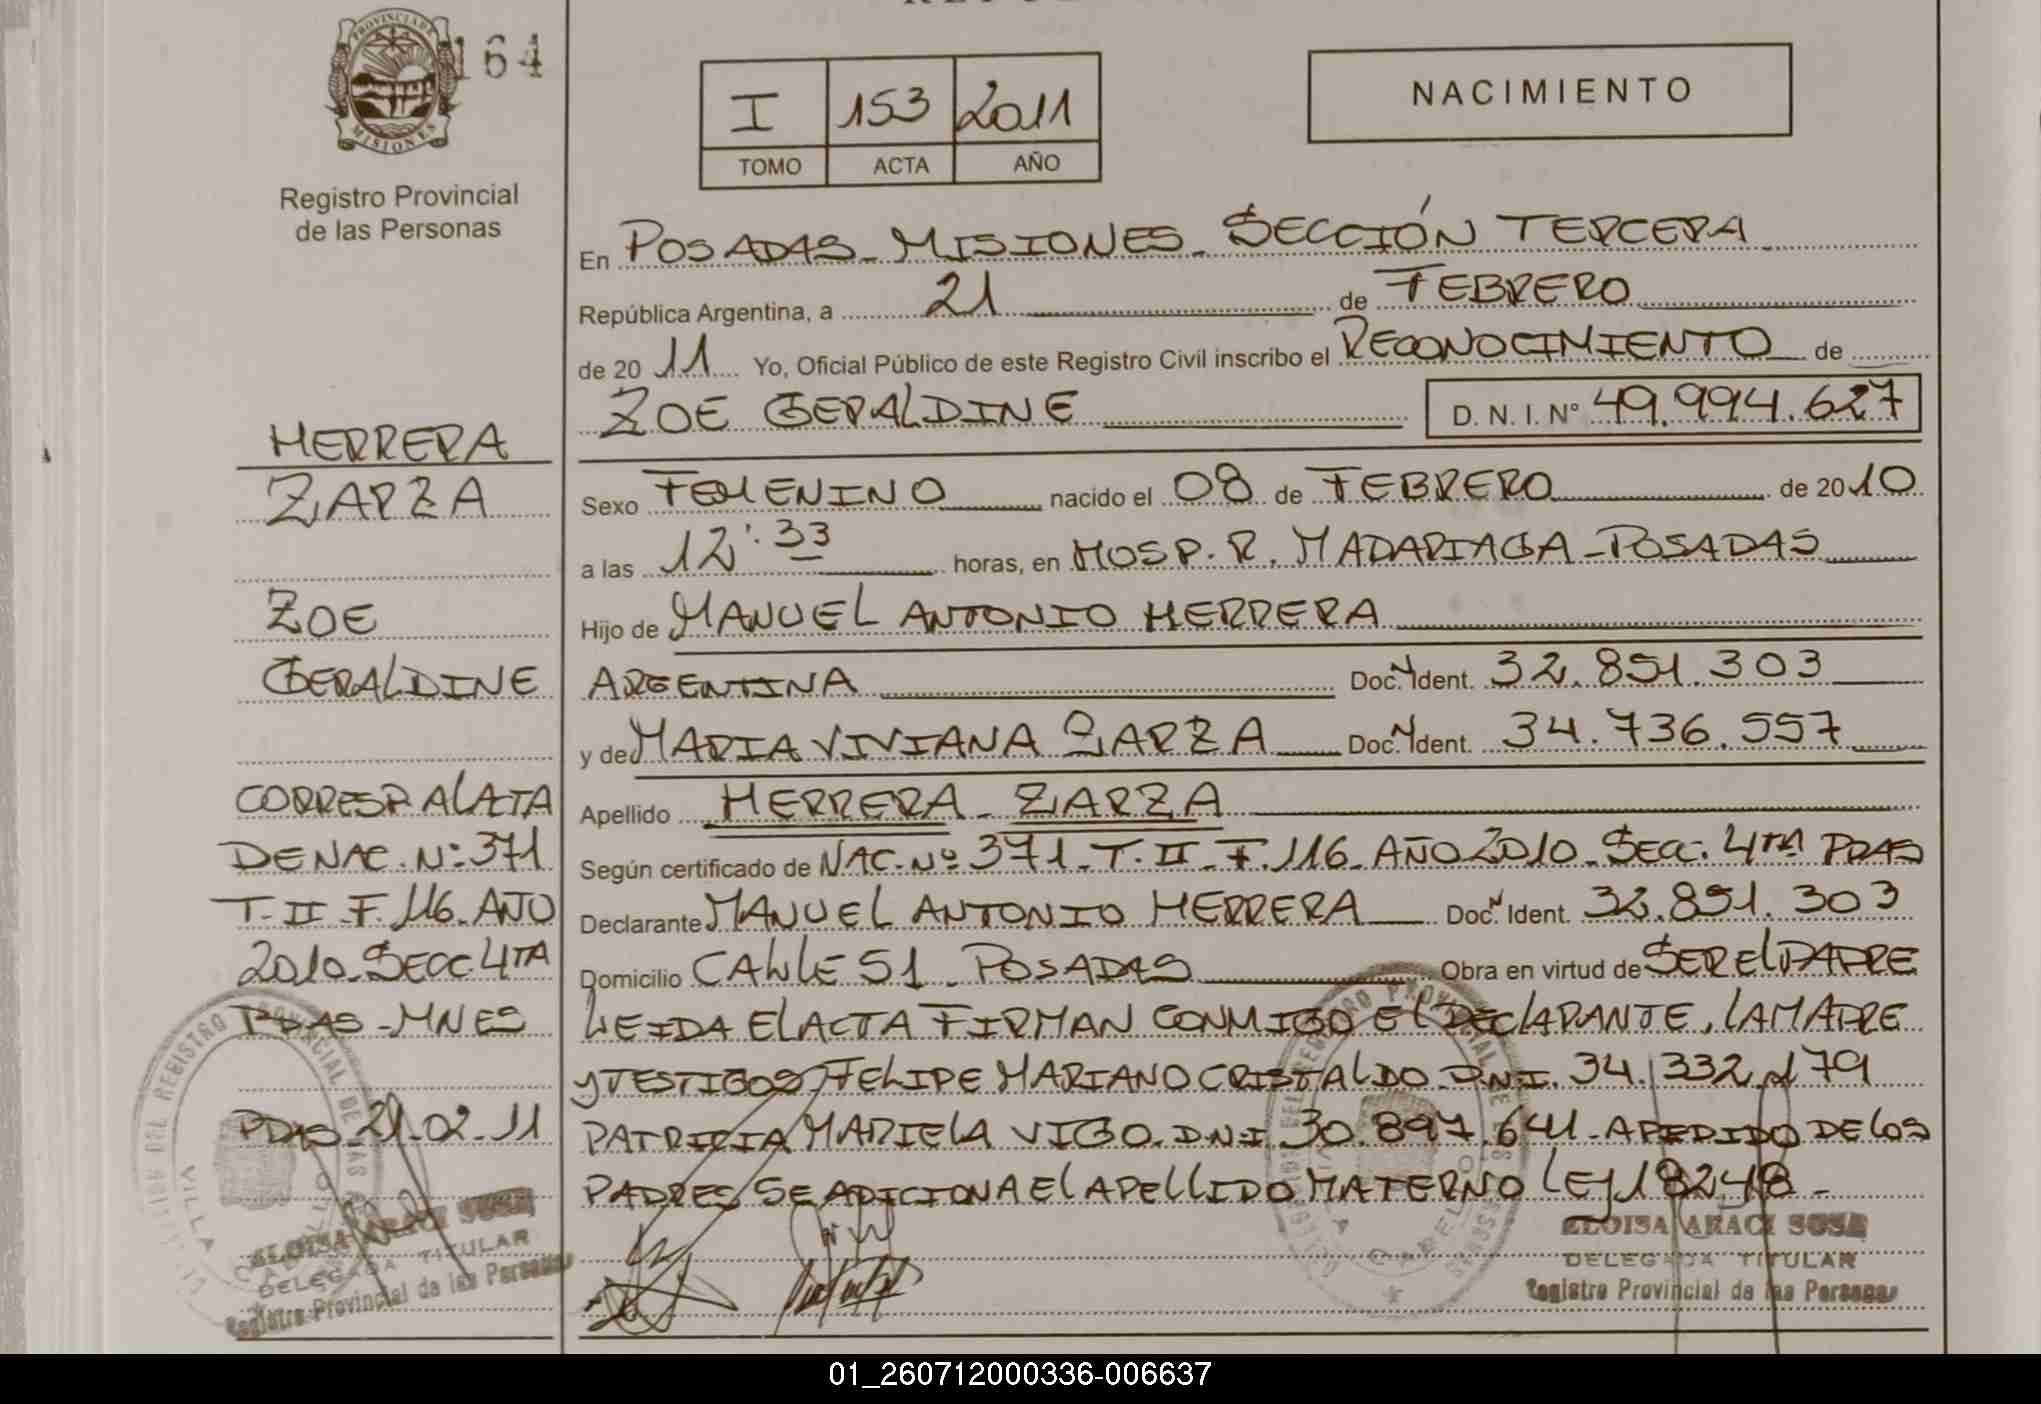 PROVINCIA DE
MISIONES
164
Registro Provincial
de las Personas
I 153 2011
TOMO ACTA AÑO
NACIMIENTO
En POSADAS - MISIONES - SECCIÓN TERCERA
República Argentina, a 21 de FEBRERO
de 2011 Yo, Oficial Público de este Registro Civil inscribo el RECONOCIMIENTO de
ZOE GERALDINE D. N. I. N° 49.994.627
Sexo FEMENINO nacido el 08 de FEBRERO de 2010
a las 12:33 horas, en HOSP. R. MADARIAGA - POSADAS
Hijo de MANUEL ANTONIO HERRERA
ARGENTINA Doc. N Ident. 32.851.303
y de MARIA VIVIANA ZARZA Doc. N Ident. 34.736.557
Apellido HERRERA - ZARZA
Según certificado de NAC. Nº 371 - T. II - F. 116 - AÑO 2010 - SECC. 4TA PDAS
Declarante MANUEL ANTONIO HERRERA Doc. N Ident. 32.851.303
Domicilio CALLE 51 - POSADAS Obra en virtud de SER EL PADRE
LEIDA EL ACTA FIRMAN CONMIGO EL DECLARANTE, LA MADRE
Y TESTIGOS FELIPE MARIANO CRISTALDO D.N.I. 34.332.179
PATRICIA MARIELA VIGO. D.N.I. 30.897.641 - A PEDIDO DE LOS
PADRES SE ADICIONA EL APELLIDO MATERNO LEY 18248 -
ELOISA ARACI SOSA
DELEGADA TITULAR
Registro Provincial de las Personas
HERRERA
ZARZA
ZOE
GERALDINE
CORRESP. AL ACTA
DE NAC. Nº 371
T. II - F. 116 - AÑO
2010 - SECC. 4TA
PDAS - MNES
PDAS - 21-02-11
ELOISA ARACI SOSA
DELEGADA TITULAR
Registro Provincial de las Personas
01_260712000336-006637